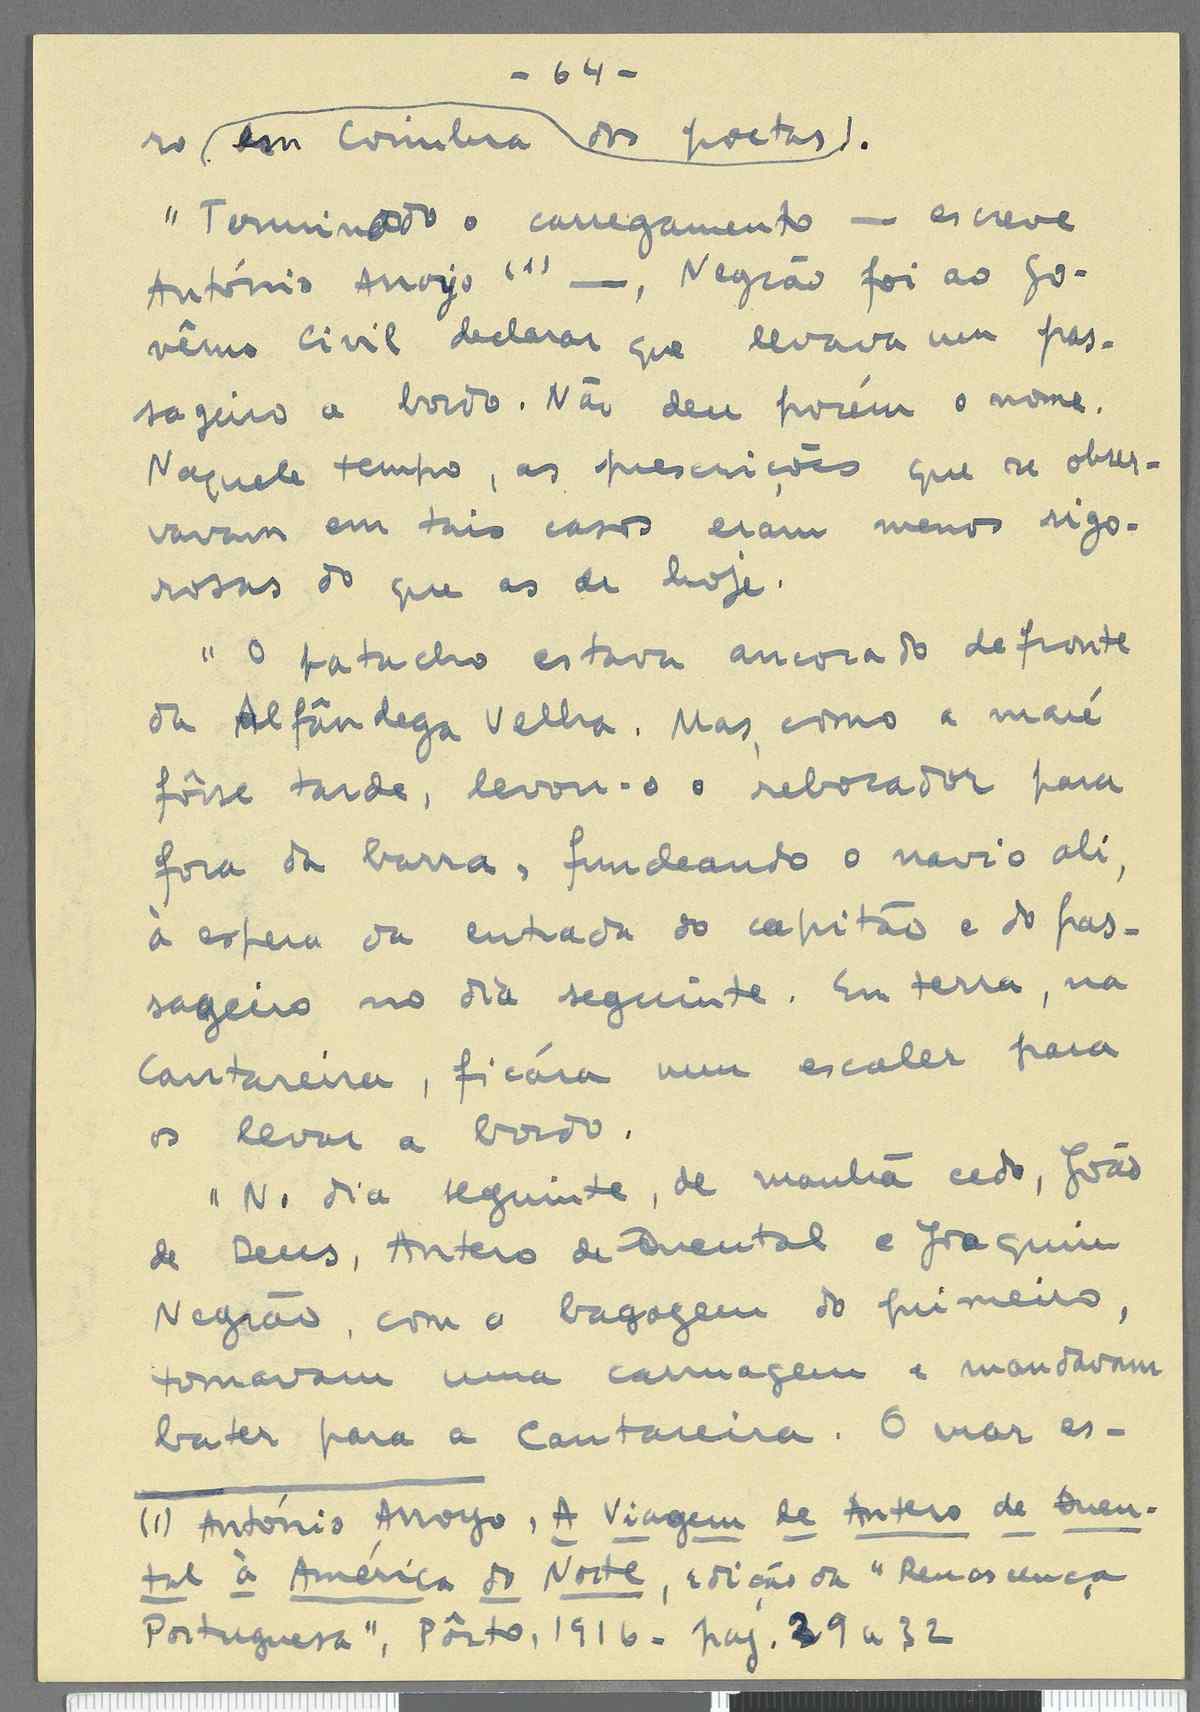 - 64 -
ro (em Coimbra dos poetas).
" Terminado o carregamento — escreve
António Arroyo (1) —, Negrão foi ao Go-
vêrno Civil declarar que levava um pas-
sageiro a bordo. Não deu porém o nome.
Naquele tempo, as prescrições que se obser-
vavam em tais casos eram menos rigo-
rosas do que as de hoje.
" O patacho estava ancorado defronte
da Alfândega Velha. Mas, como a maré
fôsse tarde, levou-o o rebocador para
fora da barra, fundeando o navio ali,
à espera da entrada do capitão e do pas-
sageiro no dia seguinte. Em terra, na
Cantareira, ficára um escaler para
os levar a bordo.
" No dia seguinte, de manhã cedo, João
de Deus, Antero de Quental e Joaquim
Negrão, com a bagagem do primeiro,
tomavam uma carruagem e mandavam
bater para a Cantareira. O mar es-
(1) António Arroyo, A Viagem de Antero de Quen-
tal à América do Norte, edição da "Renascença
Portuguesa", Pôrto, 1916 - pág. 29 a 32